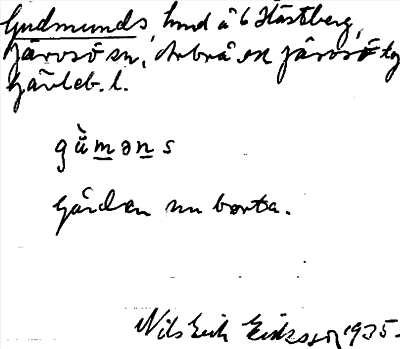 Gudmunds, hmd å 6 Hästberg,
Järvsö sn, Arbrå ok Järvsö tg
Gävleb. l.
gùmǝns
Gården nu borta.
Nils Erik Eriksson 1935.